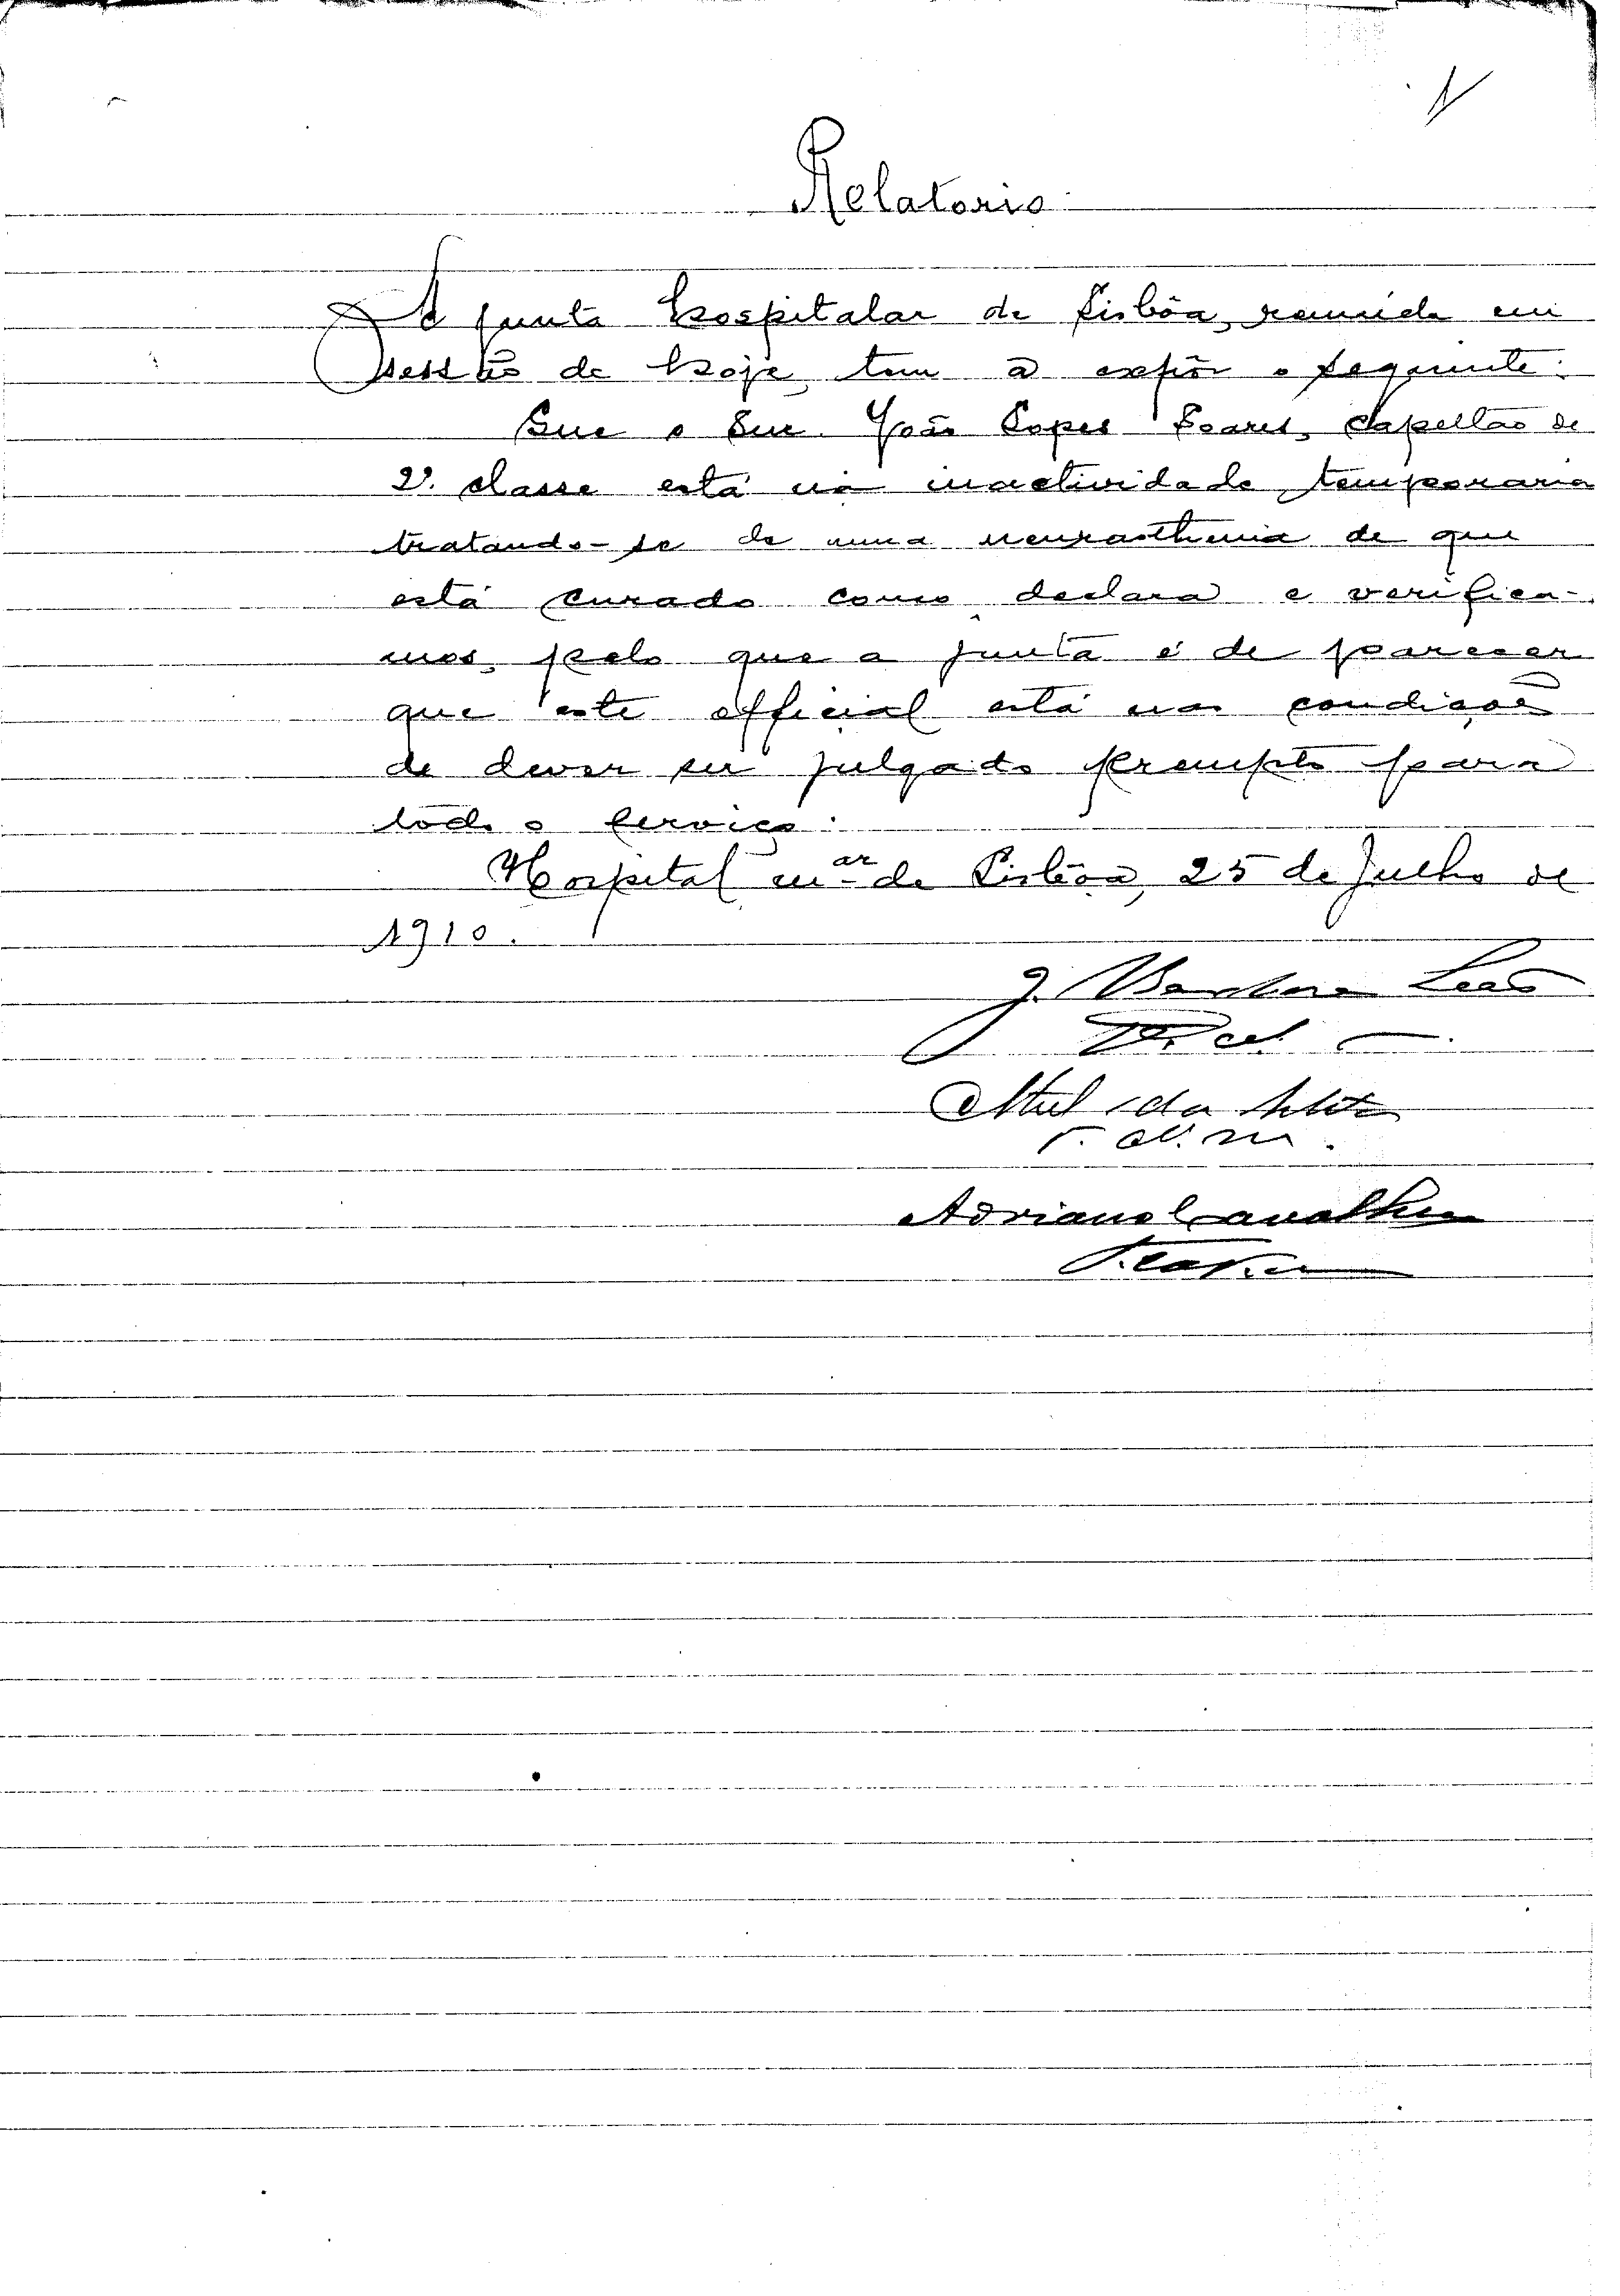 Relatorio
A junta hospitalar de Lisbôa, reunida em
sessão de hoje, tem a expôr o seguinte:
Que o Snr. João Lopes Soares, Capellão de
2ª. classe está na inactividade temporaria
tratando-se de uma neurasthenia de que
está curado como declara e verifica-
mos, pelo que a junta é de parecer
que este official está nas condições
de dever ser julgado prompto para
todo o serviço.
Hospital m.ar de Lisbôa, 25 de Julho de
1910.
J. Barbosa Leão
da
Adriano Carvalho